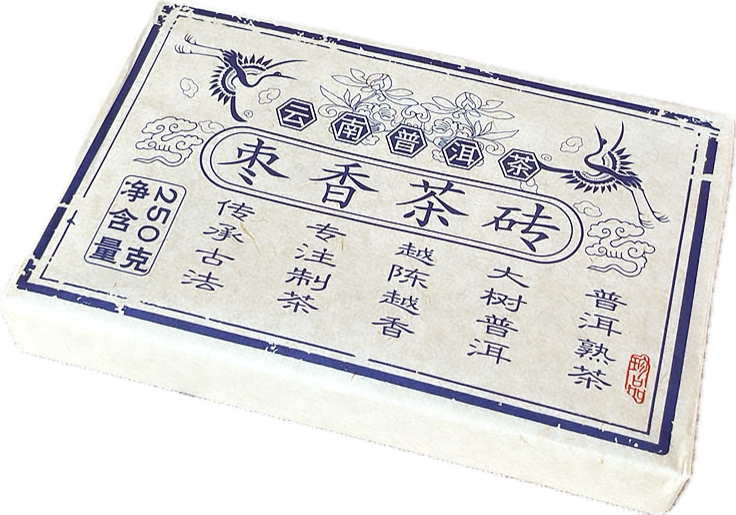 云南普洱茶
枣香茶砖
净含量
250克
传承古法
专注制茶
越陈越香
大树普洱
普洱熟茶
珍品